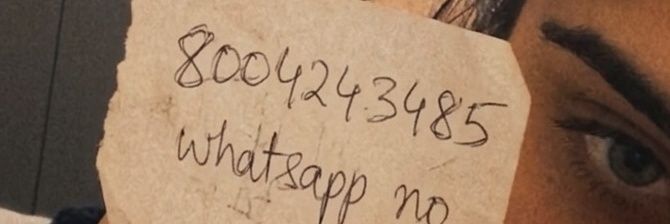 8004243485
whatsapp no